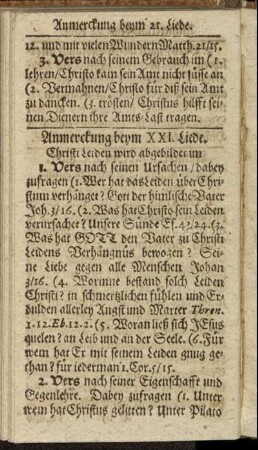 Anmerckung beym 21. Liede.
12. und mit vielen Wundern Matth. 21/15.
3. Vers nach seinem Gebrauch im (1.
lehren/Christo kam sein Amt nicht sasse an
(2. Vermahnen/Christo für diß sein Amt
zu dancken. (3. trösten/Christus hilfft sei-
nen Dienern ihre Amts-Last tragen.
Anmerckung beym XXI. Liede.
Christi Leiden wird abgebildet im
1. Vers nach seinen Ursachen/dabey
zufragen (1. Wer hat das Leiden über Chri-
stum verhänget? Gott der himlische Vater
Joh. 3/16. (2. Was hat Christo sein Leiden
verursachet? Unsere Sünde Es. 43, 24. (3.
Was hat GOTT den Vater zu Christi
Leidens Verhängnüs bewogen? Sei-
ne Liebe gegen alle Menschen Johan
3/16. (4. Worinne bestand solch Leiden
Christi? in schmertzlichen fühlen und Er-
dulden allerley Angst und Marter Thren.
1. 12. Eb. 12. 2. (5. Woran ließ sich JEsus
quelen? an Leib und an der Seele. (6. Für
wem hat Er mit seinem Leiden gnug ge-
than? für iederman 1. Cor. 5/15.
2. Vers nach seiner Eigenschafft und
Gegenlehre. Dabey zufragen (1. Unter
wem hat Christus gelitten? Unter Pilato